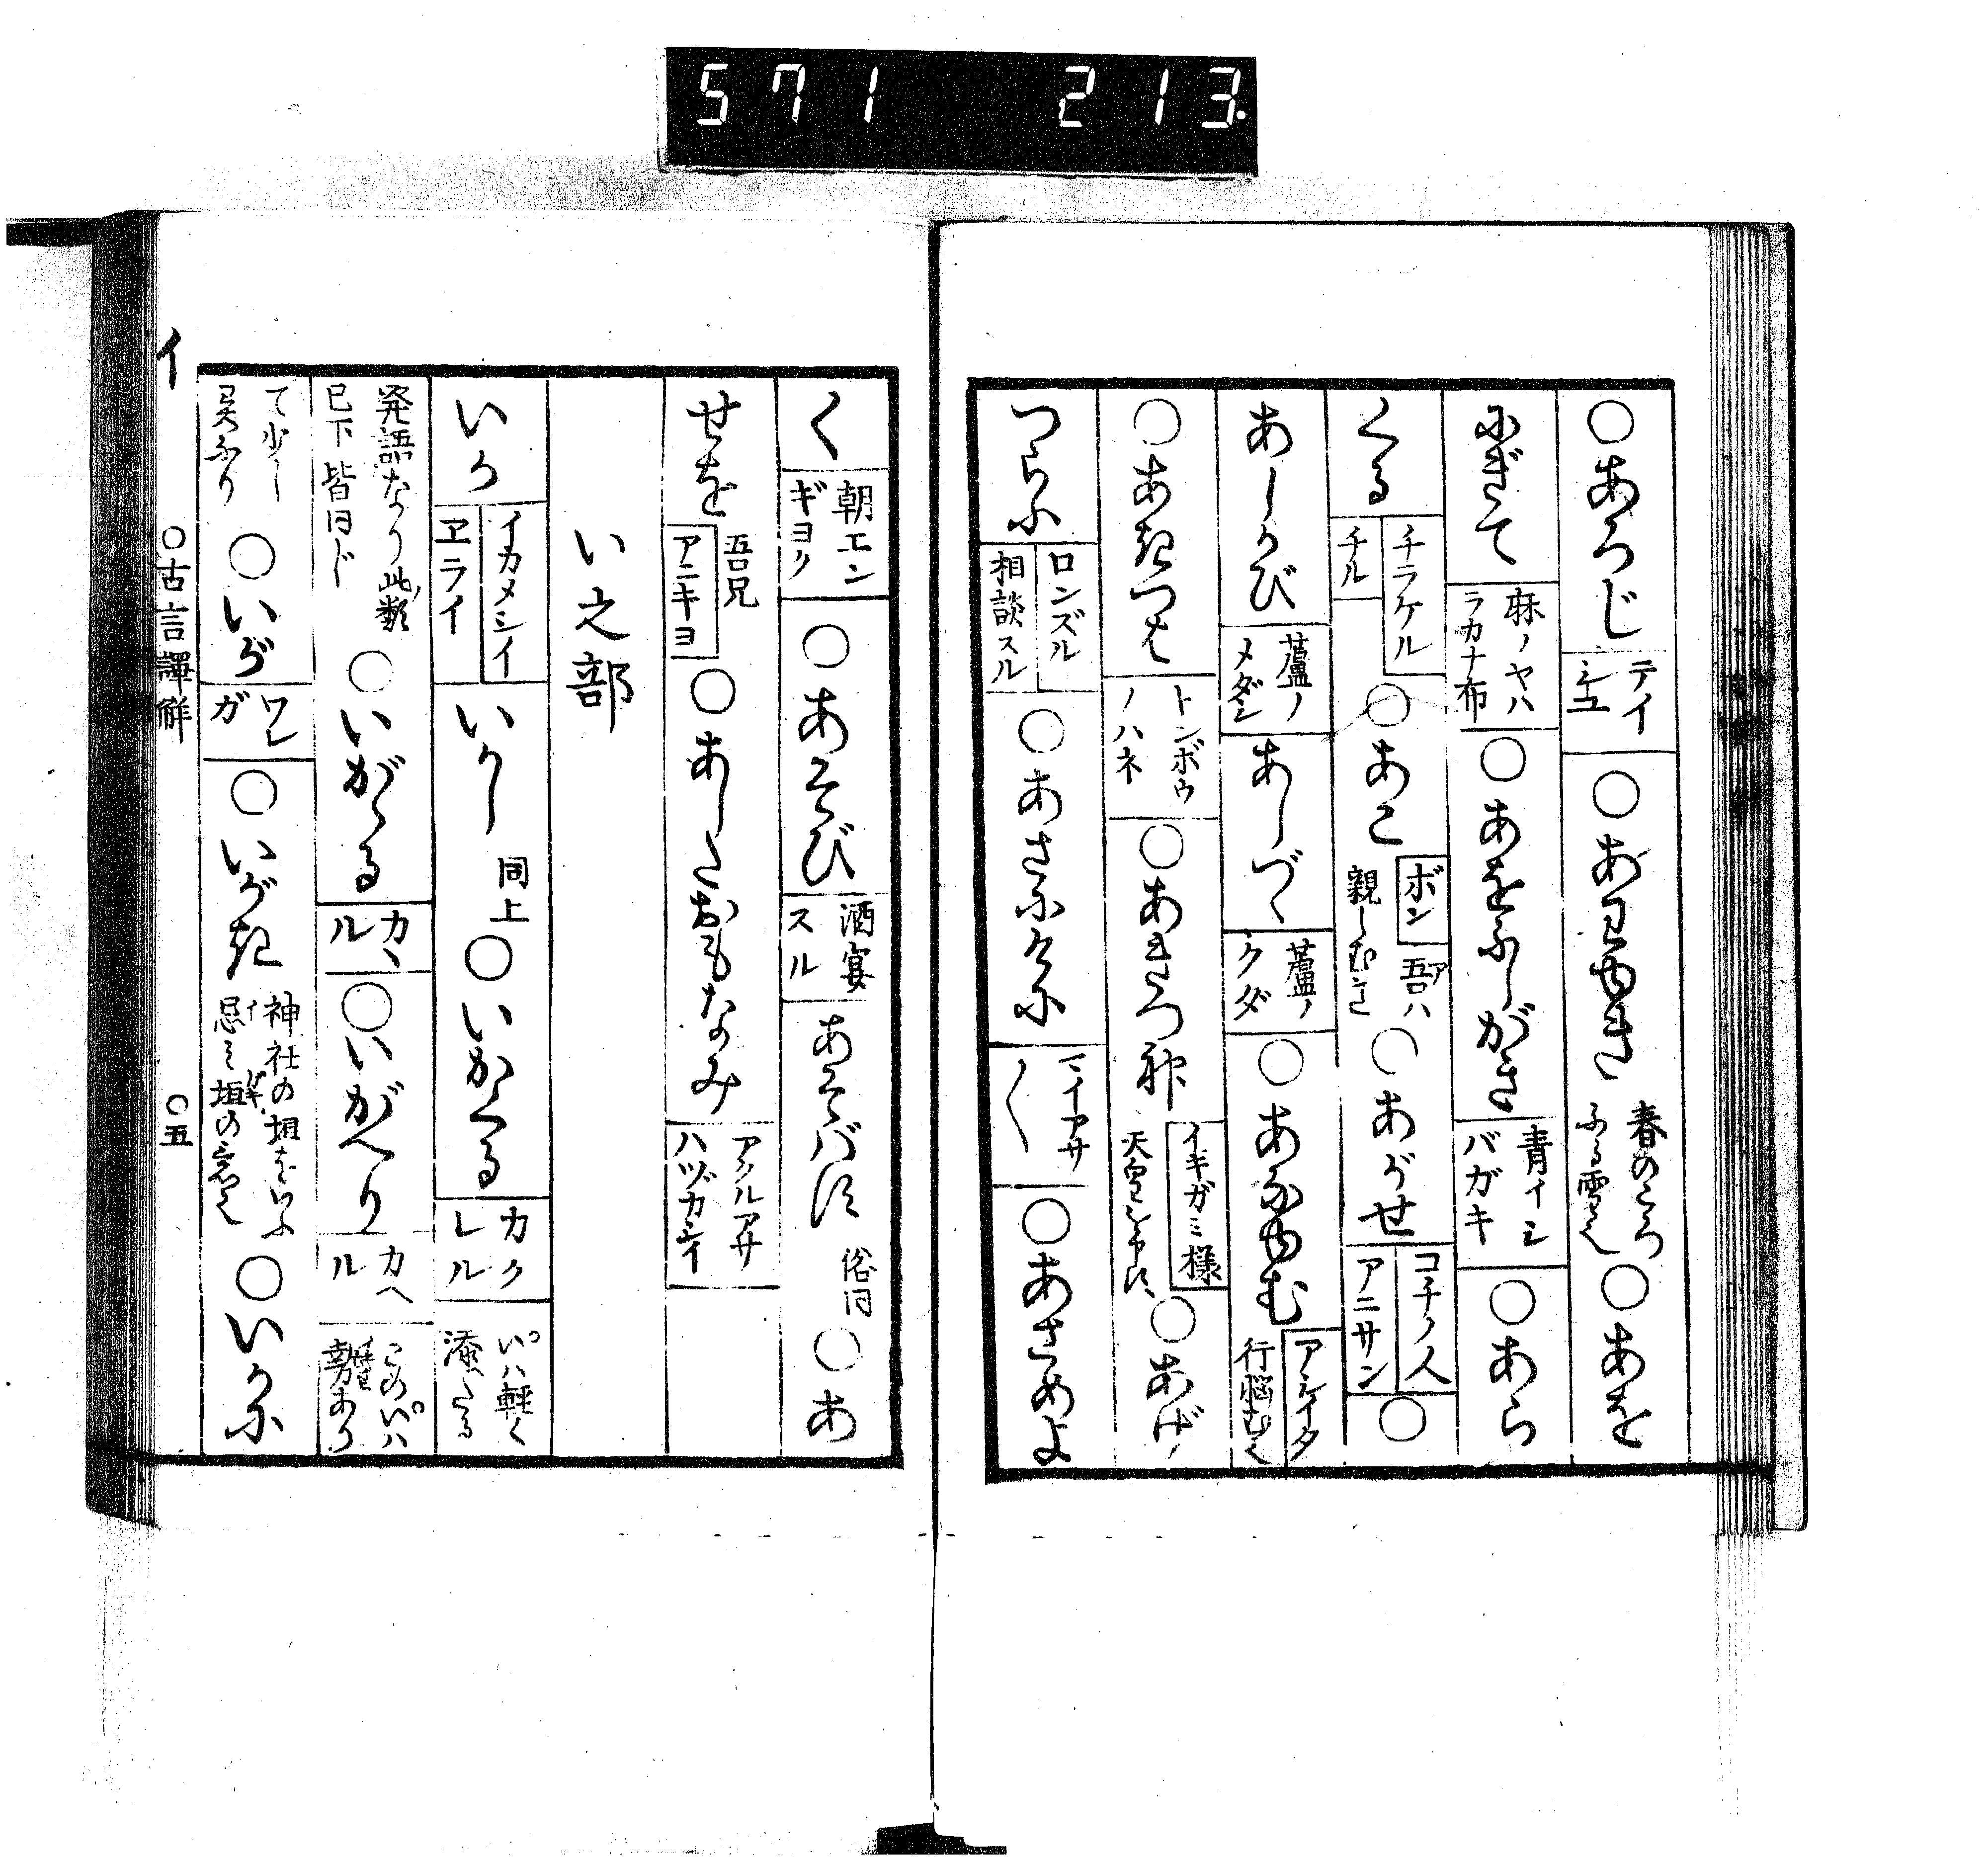 571 213.
○あろじ テイシユ ○あわゆき 春のころふる雪也 ○あを
にぎて 麻ノヤハラカナ布 ○あをふしがき 青イシバガキ ○あら
くる チラケル チル ○あこ ボン 吾ハ親しむこ ○あがせ コチノ人 アニサン ○
あしかび 蘆ノメダシ あしづゝ 蘆ノクダ ○あなゆむ アシイタ 行悩む也
○あきつは トンボウノハネ ○あきつ神 イキガミ様 ○あげ
つらふ ロンズル 相談スル ○あさにけに マイアサ〱 ○あさめよ
く 朝エンギヨク ○あそび 酒宴スル あそばす 俗同 ○あ
せを 吾兄 アニキヨ ○あしたおもなみ アクルアサハヅカシイ
い之部
いか イカメシイ ヱライ いかし 同上 ○いかくる カクレル いハ軽く添たる
発語なり此類已下皆同じ ○いがゝる カヽル ○いがへり カヘル このいハ勢あり
て少し異なり ○いが ワレガ ○いがき 神社の垣をいふ忌ミ垣の意也 ○いかに
イ ○古言譯解 ○五